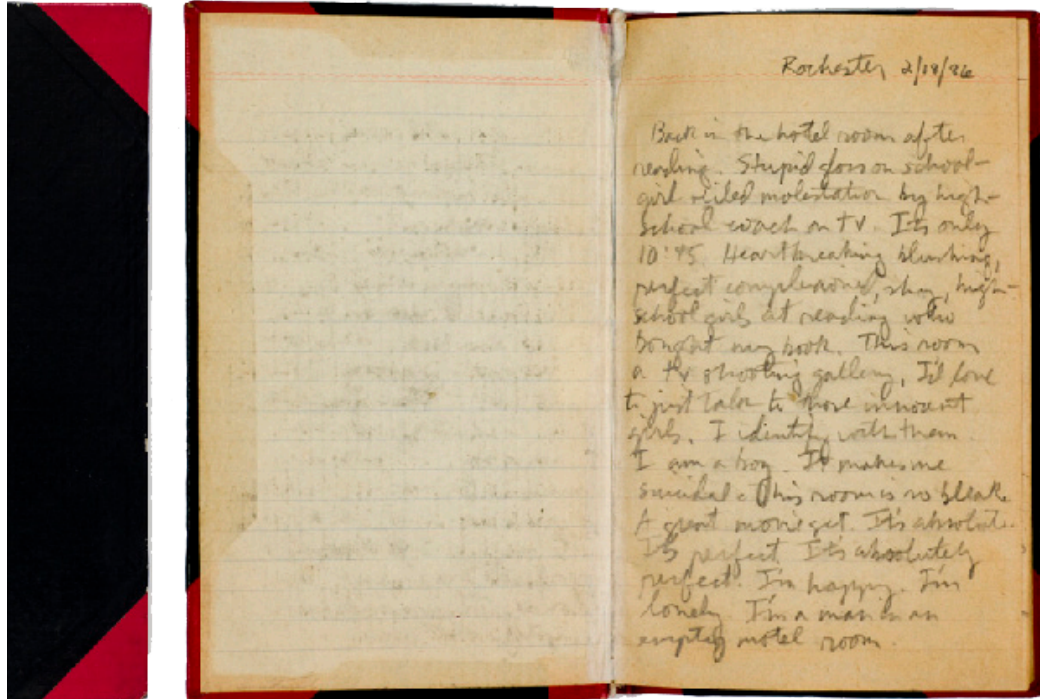 Rochester 2/18/86
Back in the hotel room after
reading. Stupid on school-
girl molestation by high-
school coach on TV. It's only
10:45. Heartbreaking blushing,
perfect complexioned, shy, high-
school girls at reading who
bought my book. This room
a TV shooting gallery, I'd love
to just talk to those innocent
girls. I identify with them.
I am a boy. It makes me
suicidal. This room is so bleak.
A great movie set. It's absolute.
It's perfect. It's absolutely
perfect. I'm happy. I'm
lonely. I'm a man in an
empty motel room.